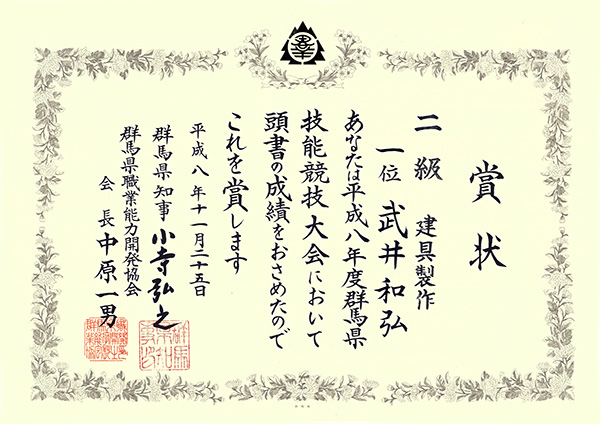 賞状
二級 建具製作
一位 武井和弘
あなたは平成八年度群馬県
技能競技大会において
頭書の成績をおさめたので
これを賞します
平成八年十一月二十五日
群馬県知事 小寺弘之
群馬県職業能力開発協会
会長 中原一男